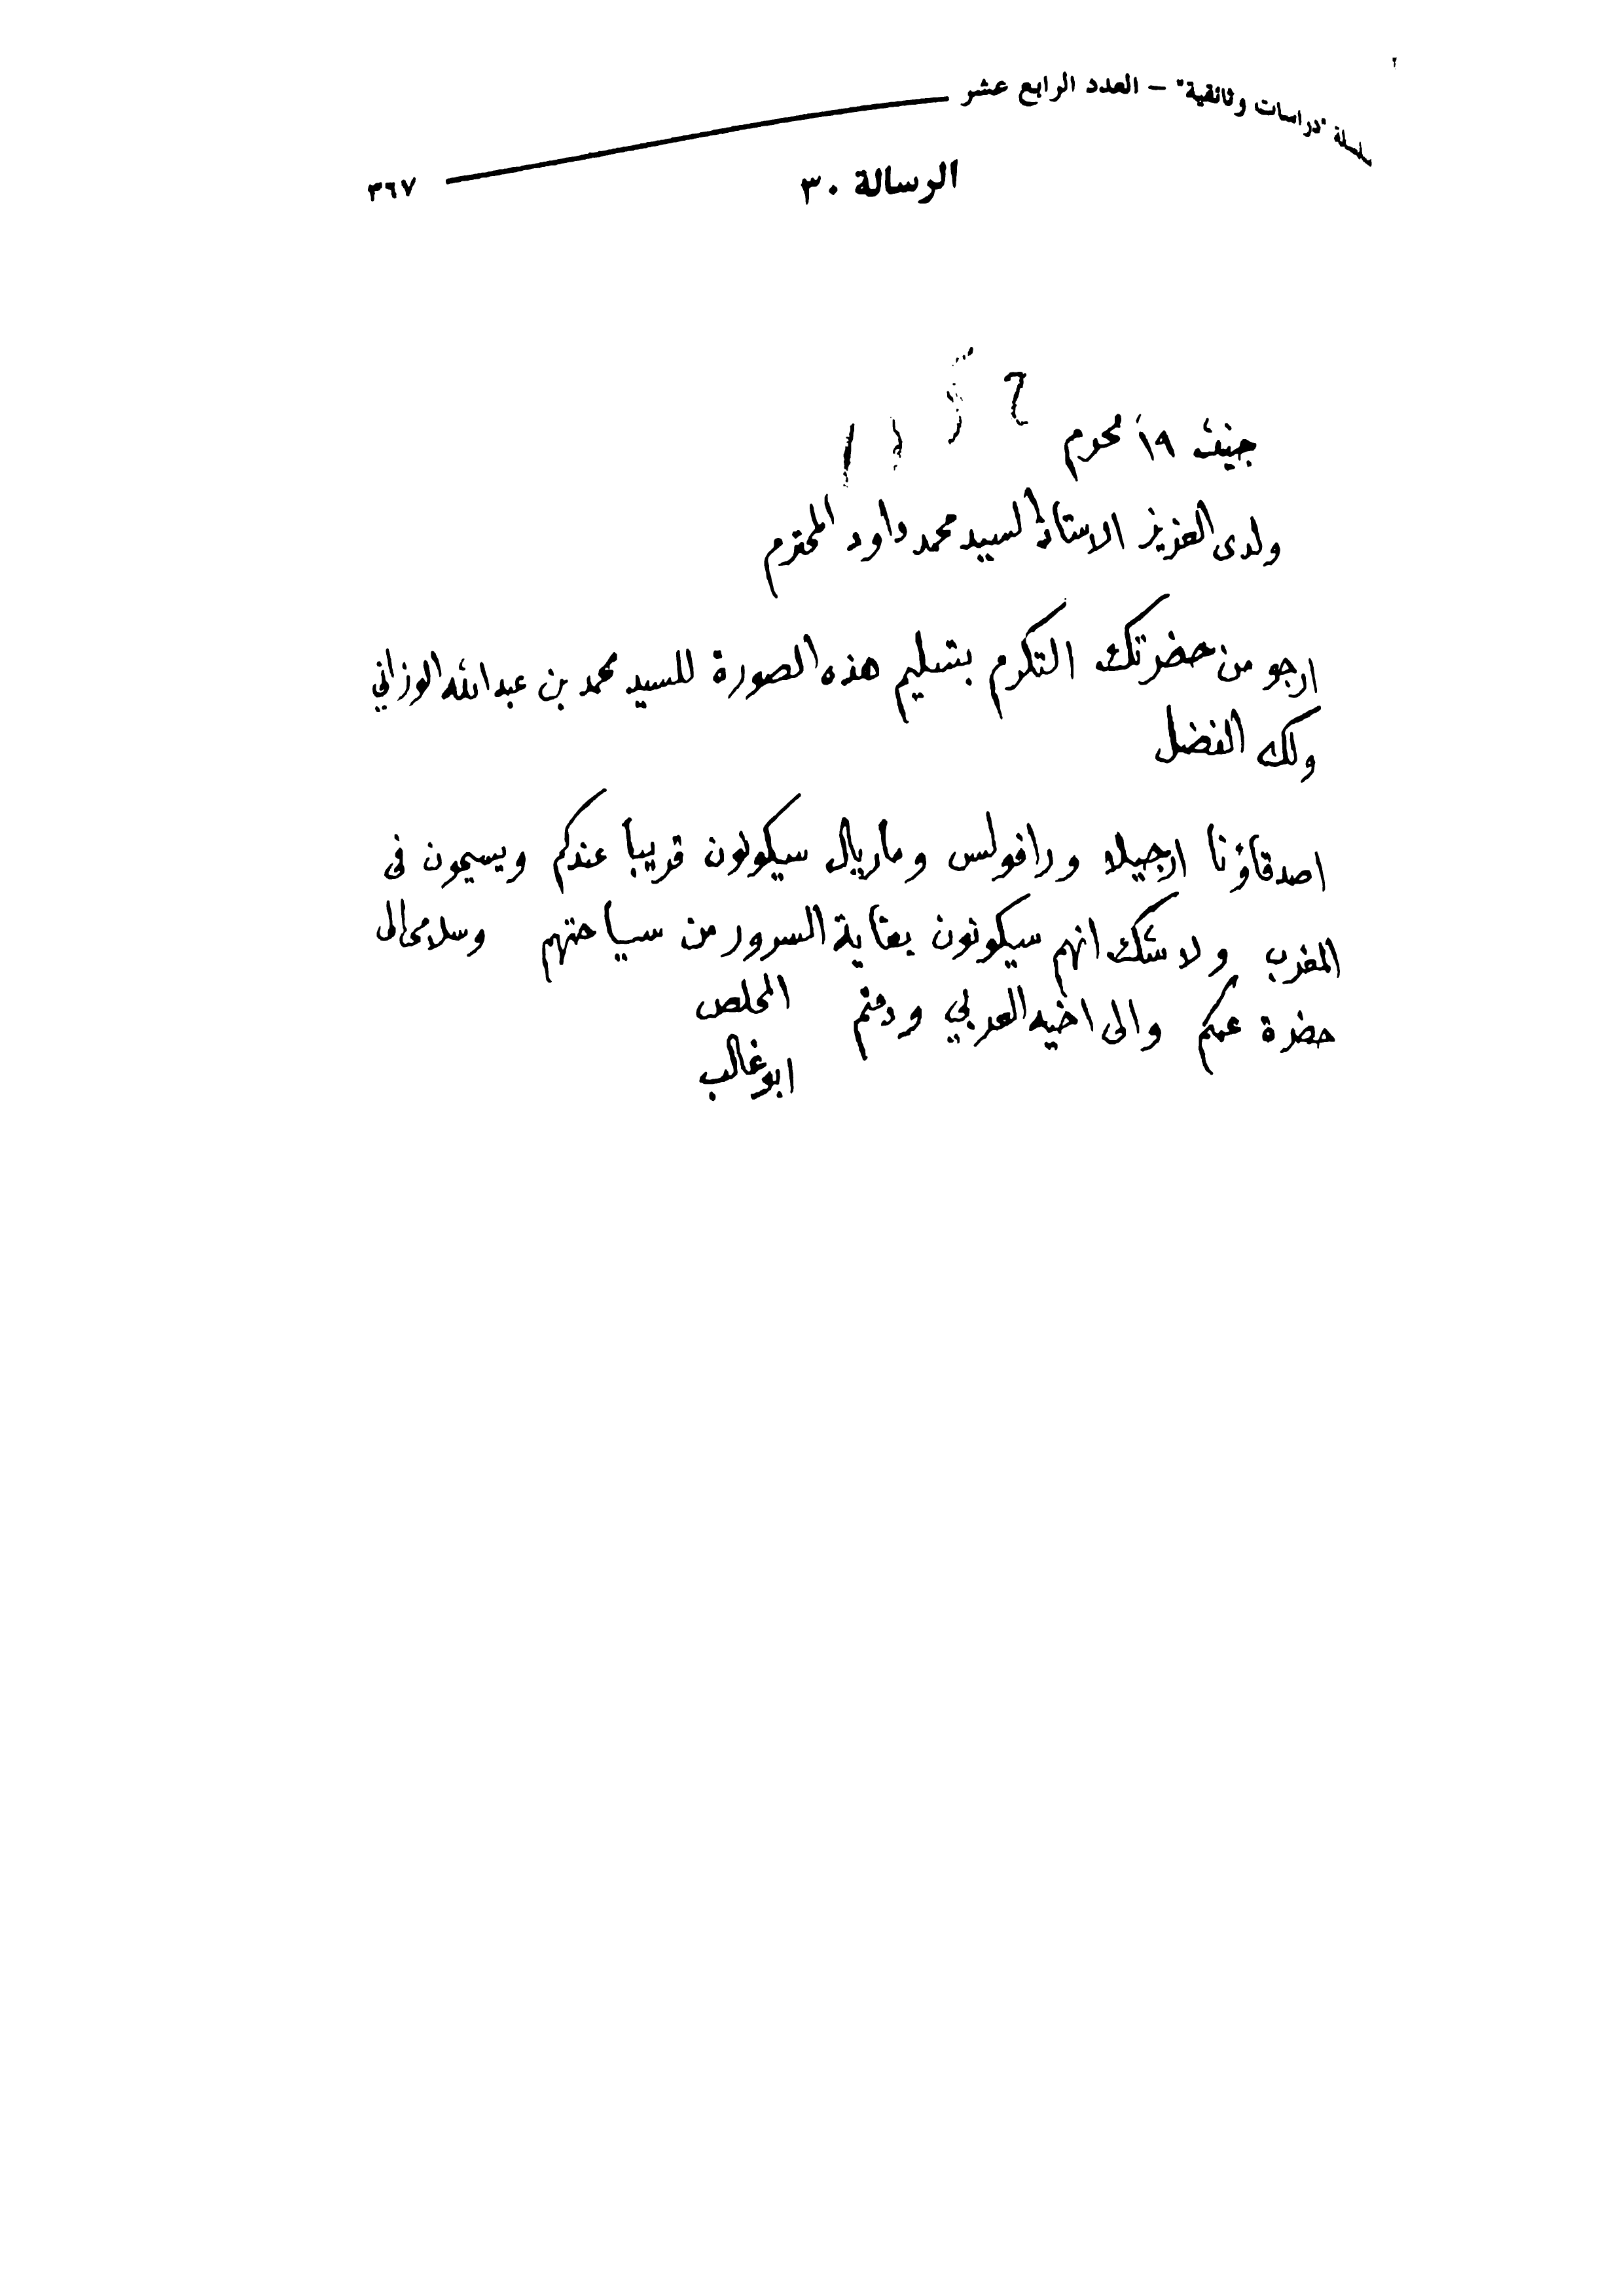 سلسلة "دراسات وثائقية" – العدد الرابع عشر
٣٦٧
الرسالة ٣٠
جنيف ١٩ محرم
ولدى العزيز الاستاذ السيد محمد داود المحترم
ارجو من حضرتك التكرم بتسليم هذه الصورة للسيد محمد بن عبد الله الوزاني
ولك الفضل
اصدقاؤنا ارجيلا ورافولس وماريال سيكونون قريبا عندكم ويسيحون فى
المغرب ولا شك انهم سيكونون بغاية السرور من سياحتهم وسلامى الى
حضرة عمكم والى اخيه العربي ودمتم المخلص
ابو غالب